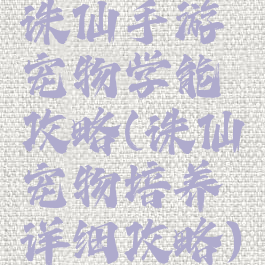 诛仙手游
宠物学能
攻略(诛仙
宠物培养
详细攻略)